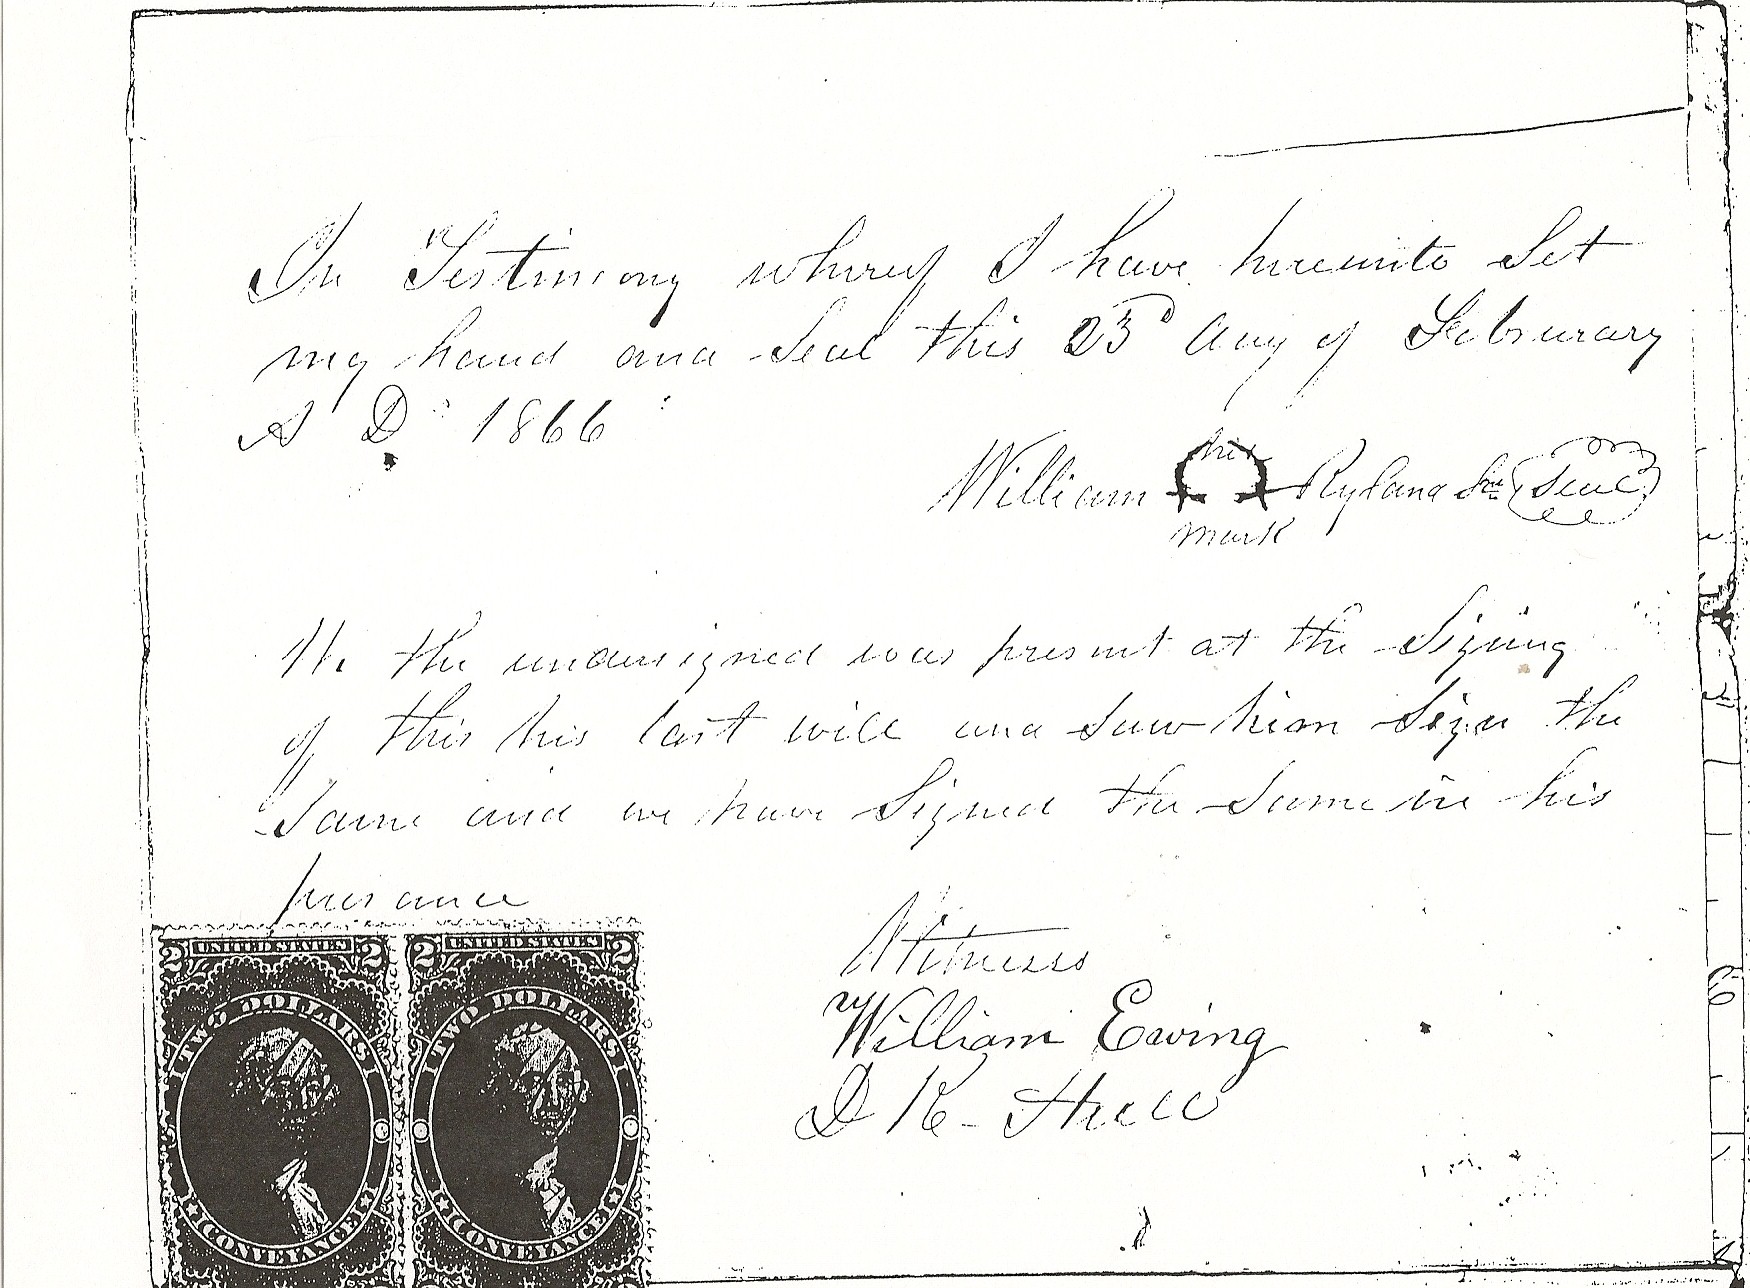 In Testimony whereof I have hereunto Set
my hand and Seal this 23d day of Februrary
A D 1866
his
William Ryland Snr Seal
mark
We the undersigned was present at the Signing
of this his last will and saw him Sign the
Same and we have Signed the Same in his
presance
Witness
William Ewing
D K Hull
2 UNITED STATES 2
TWO DOLLARS
CONVEYANCE
2 UNITED STATES 2
TWO DOLLARS
CONVEYANCE